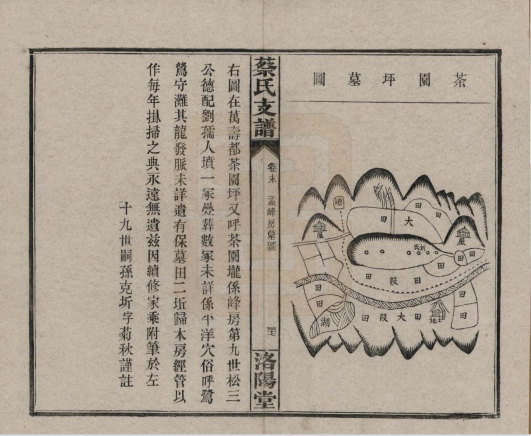 茶園坪墓圖
田
田
大
田
田
田
段
田
田
田
田
段
大
田
田
湖
蔡氏支譜
卷末
孟峰房墓圖
洛陽堂
右圖在萬壽都茶園坪又呼茶園壠係峰房第九世松三
公德配劉孺人墳一冢叠葬數冢未詳係平洋穴俗呼鷺
鷥守灘其龍發脈未詳遺有保墓田二坵歸本房經管以
作每年掛掃之典永遠無遺兹因續修家乘附筆於左
十九世嗣孫克圻字菊秋謹註